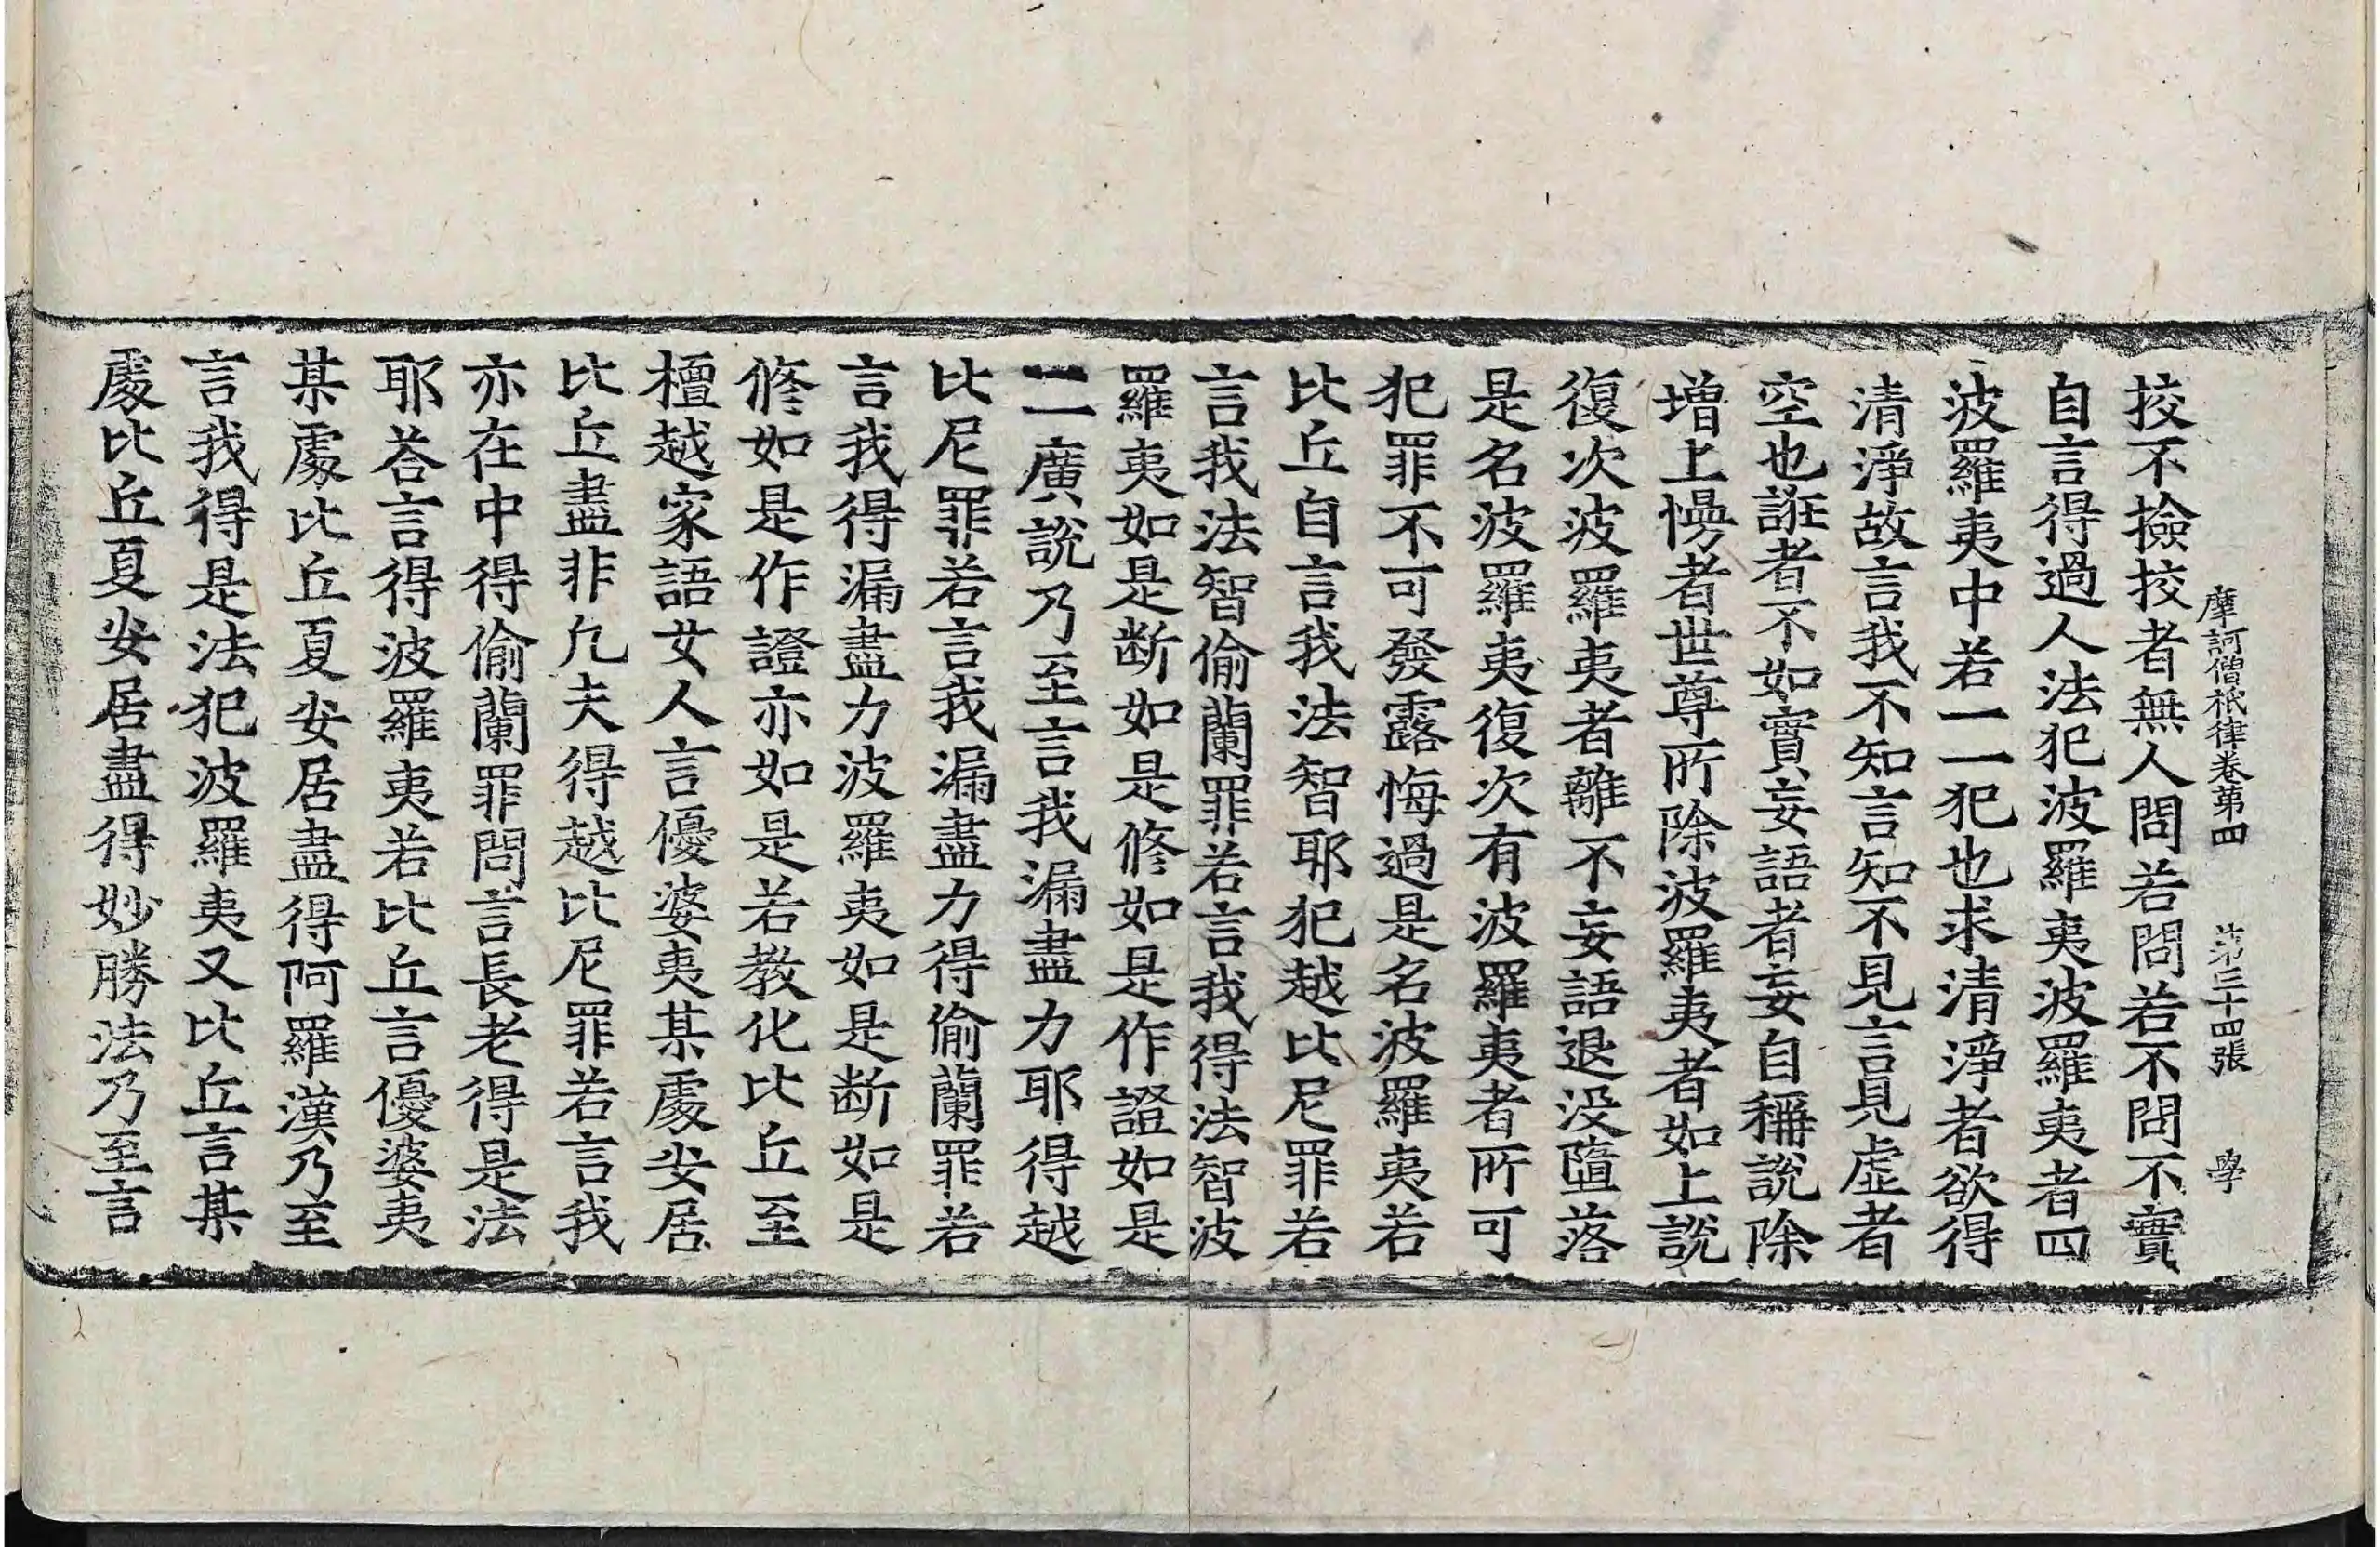 摩訶僧祇律卷第四　第三十四張　學
挍不撿挍者無人問若問若不問不實
自言得過人法犯波羅夷波羅夷者四
波羅夷中若一一犯也求清淨者欲得
清淨故言我不知言知不見言見虛者
空也誑者不如實妄語者妄自稱說除
增上慢者世尊所除波羅夷者如上說
復次波羅夷者離不妄語退没墮落
是名波羅夷復次有波羅夷者所可
犯罪不可發露悔過是名波羅夷若
比丘自言我法智耶犯越比尼罪若
言我法智偷蘭罪若言我得法智波
羅夷如是断如是修如是作證如是
一一廣說乃至言我漏盡力耶得越
比尼罪若言我漏盡力得偷蘭罪若
言我得漏盡力波羅夷如是断如是
修如是作證亦如是若教化比丘至
檀越家語女人言優婆夷某處安居
比丘盡非凢夫得越比尼罪若言我
亦在中得偷蘭罪問言長老得是法
耶荅言得波羅夷若比丘言優婆夷
某處比丘夏安居盡得阿羅漢乃至
言我得是法犯波羅夷又比丘言某
處比丘夏安居盡得妙勝法乃至言